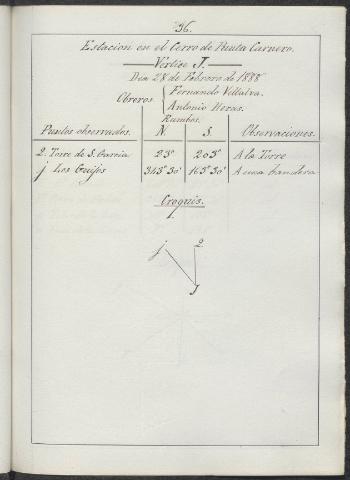 36.
Estacion en el Cerro de Punta Carnero.
Vértice J.
Dia 28 de Febrero de 1888
Obreros { Fernando Villalva.
Antonio Heras.
Rumbos.
Puntos observados. N. S. Observaciones.
2. Torre de S. Garcia 23° 203° A la Torre
j Los Guijos 345° 30' 165° 30' A una bandera
Croquis.
j 2.
J